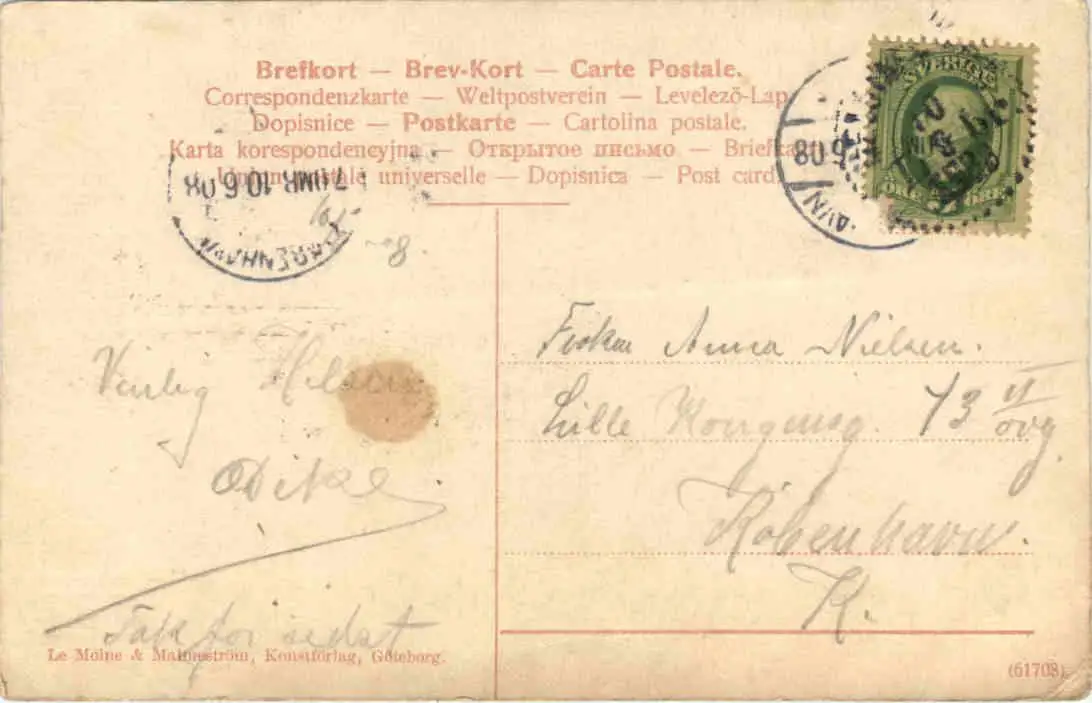 Brefkort — Brev-Kort — Carte Postale.
Correspondenzkarte — Weltpostverein — Levelező-Lap
Dopisnice — Postkarte — Cartolina postale.
Karta korespondencyjna — Открытое письмо — Briefka
postale universelle — Dopisnica — Post card.
SVERIGE
7 OMB 10.6.08
KJØBENHAVN
8.
Venlig Hilsen
Tak for sidst
Frøken Anna Nielsen.
Lille Kongensg. 43 II
ovg
København.
K.
Le Moine & Malmeström, Konstförlag, Göteborg.
(61708)